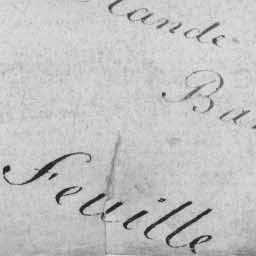 lande
Ba
Feuille